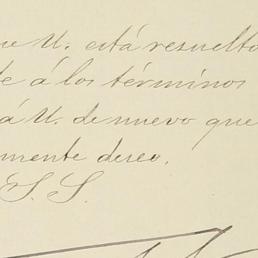 ue U. está resuelto
te á los términos
á U. de nuevo que
mente deseo.
S. S.